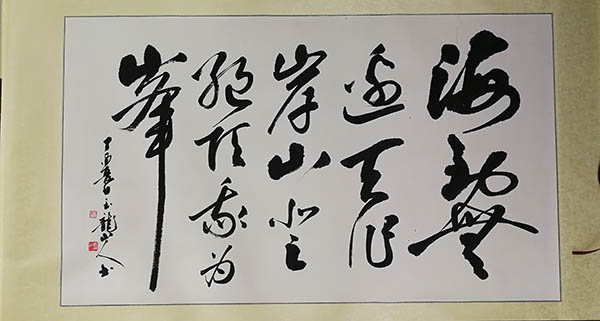 海到無
邊天作
岸山登
絕頂我為
峯
丁酉夏日玉龍山人书